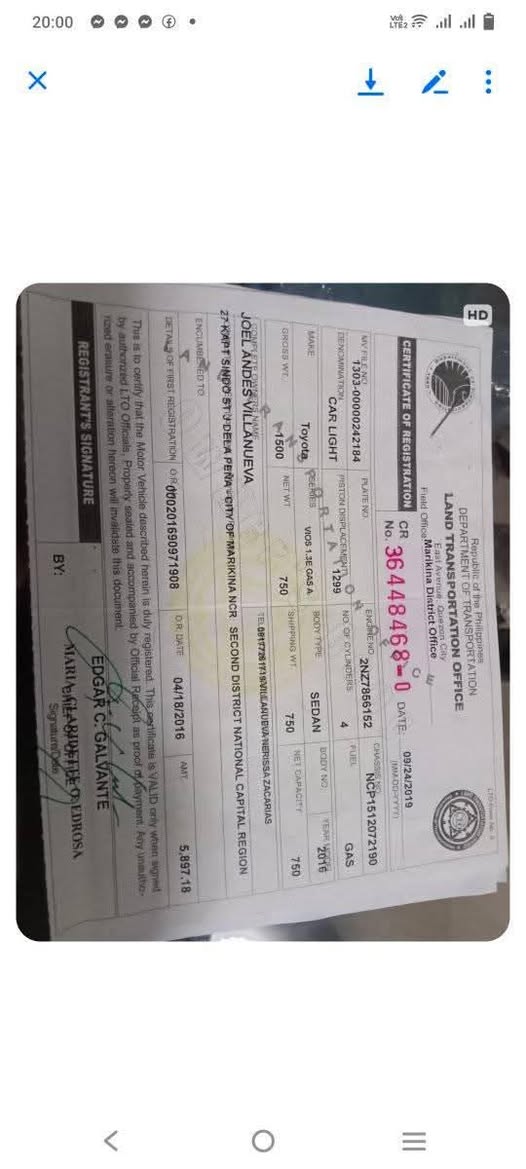 20:00
HD
LTO
Republic of the Philippines
DEPARTMENT OF TRANSPORTATION
LAND TRANSPORTATION OFFICE
East Avenue, Quezon City
Field Office Marikina District Office
CERTIFICATE OF REGISTRATION
CR No. 36448468-0
DATE: 09/24/2019
(MM/DD/YYYY)
MV FILE NO. PLATE NO. ENGINE NO. CHASSIS NO.
1303-00000242184 2NZ7856152 NCP1512072190
DENOMINATION PISTON DISPLACEMENT NO. OF CYLINDERS FUEL
CAR LIGHT 1299 4 GAS
MAKE SERIES BODY TYPE BODY NO. YEAR
Toyota VIOS 1.3E GAS A SEDAN 2016
GROSS WT. NET WT. SHIPPING WT. NET CAPACITY
1500 750 750 750
COMPLETE OWNER'S NAME
JOEL ANDES VILLANUEVA
27 KAPT SINDO ST J DELA PENA CITY OF MARIKINA NCR SECOND DISTRICT NATIONAL CAPITAL REGION
ENCUMBERED TO
DETAILS OF FIRST REGISTRATION O.R. O.R. DATE AMT
000201690971908 04/18/2016 5,897.18
This is to certify that the Motor Vehicle described herein is duly registered. This certificate is VALID only when signed
by authorized LTO Officials, Properly sealed and accompanied by Official Receipt as proof of payment. Any unautho-
rized erasure or alteration hereon will invalidate this document.
REGISTRANT'S SIGNATURE
EDGAR C. GALVANTE
BY: